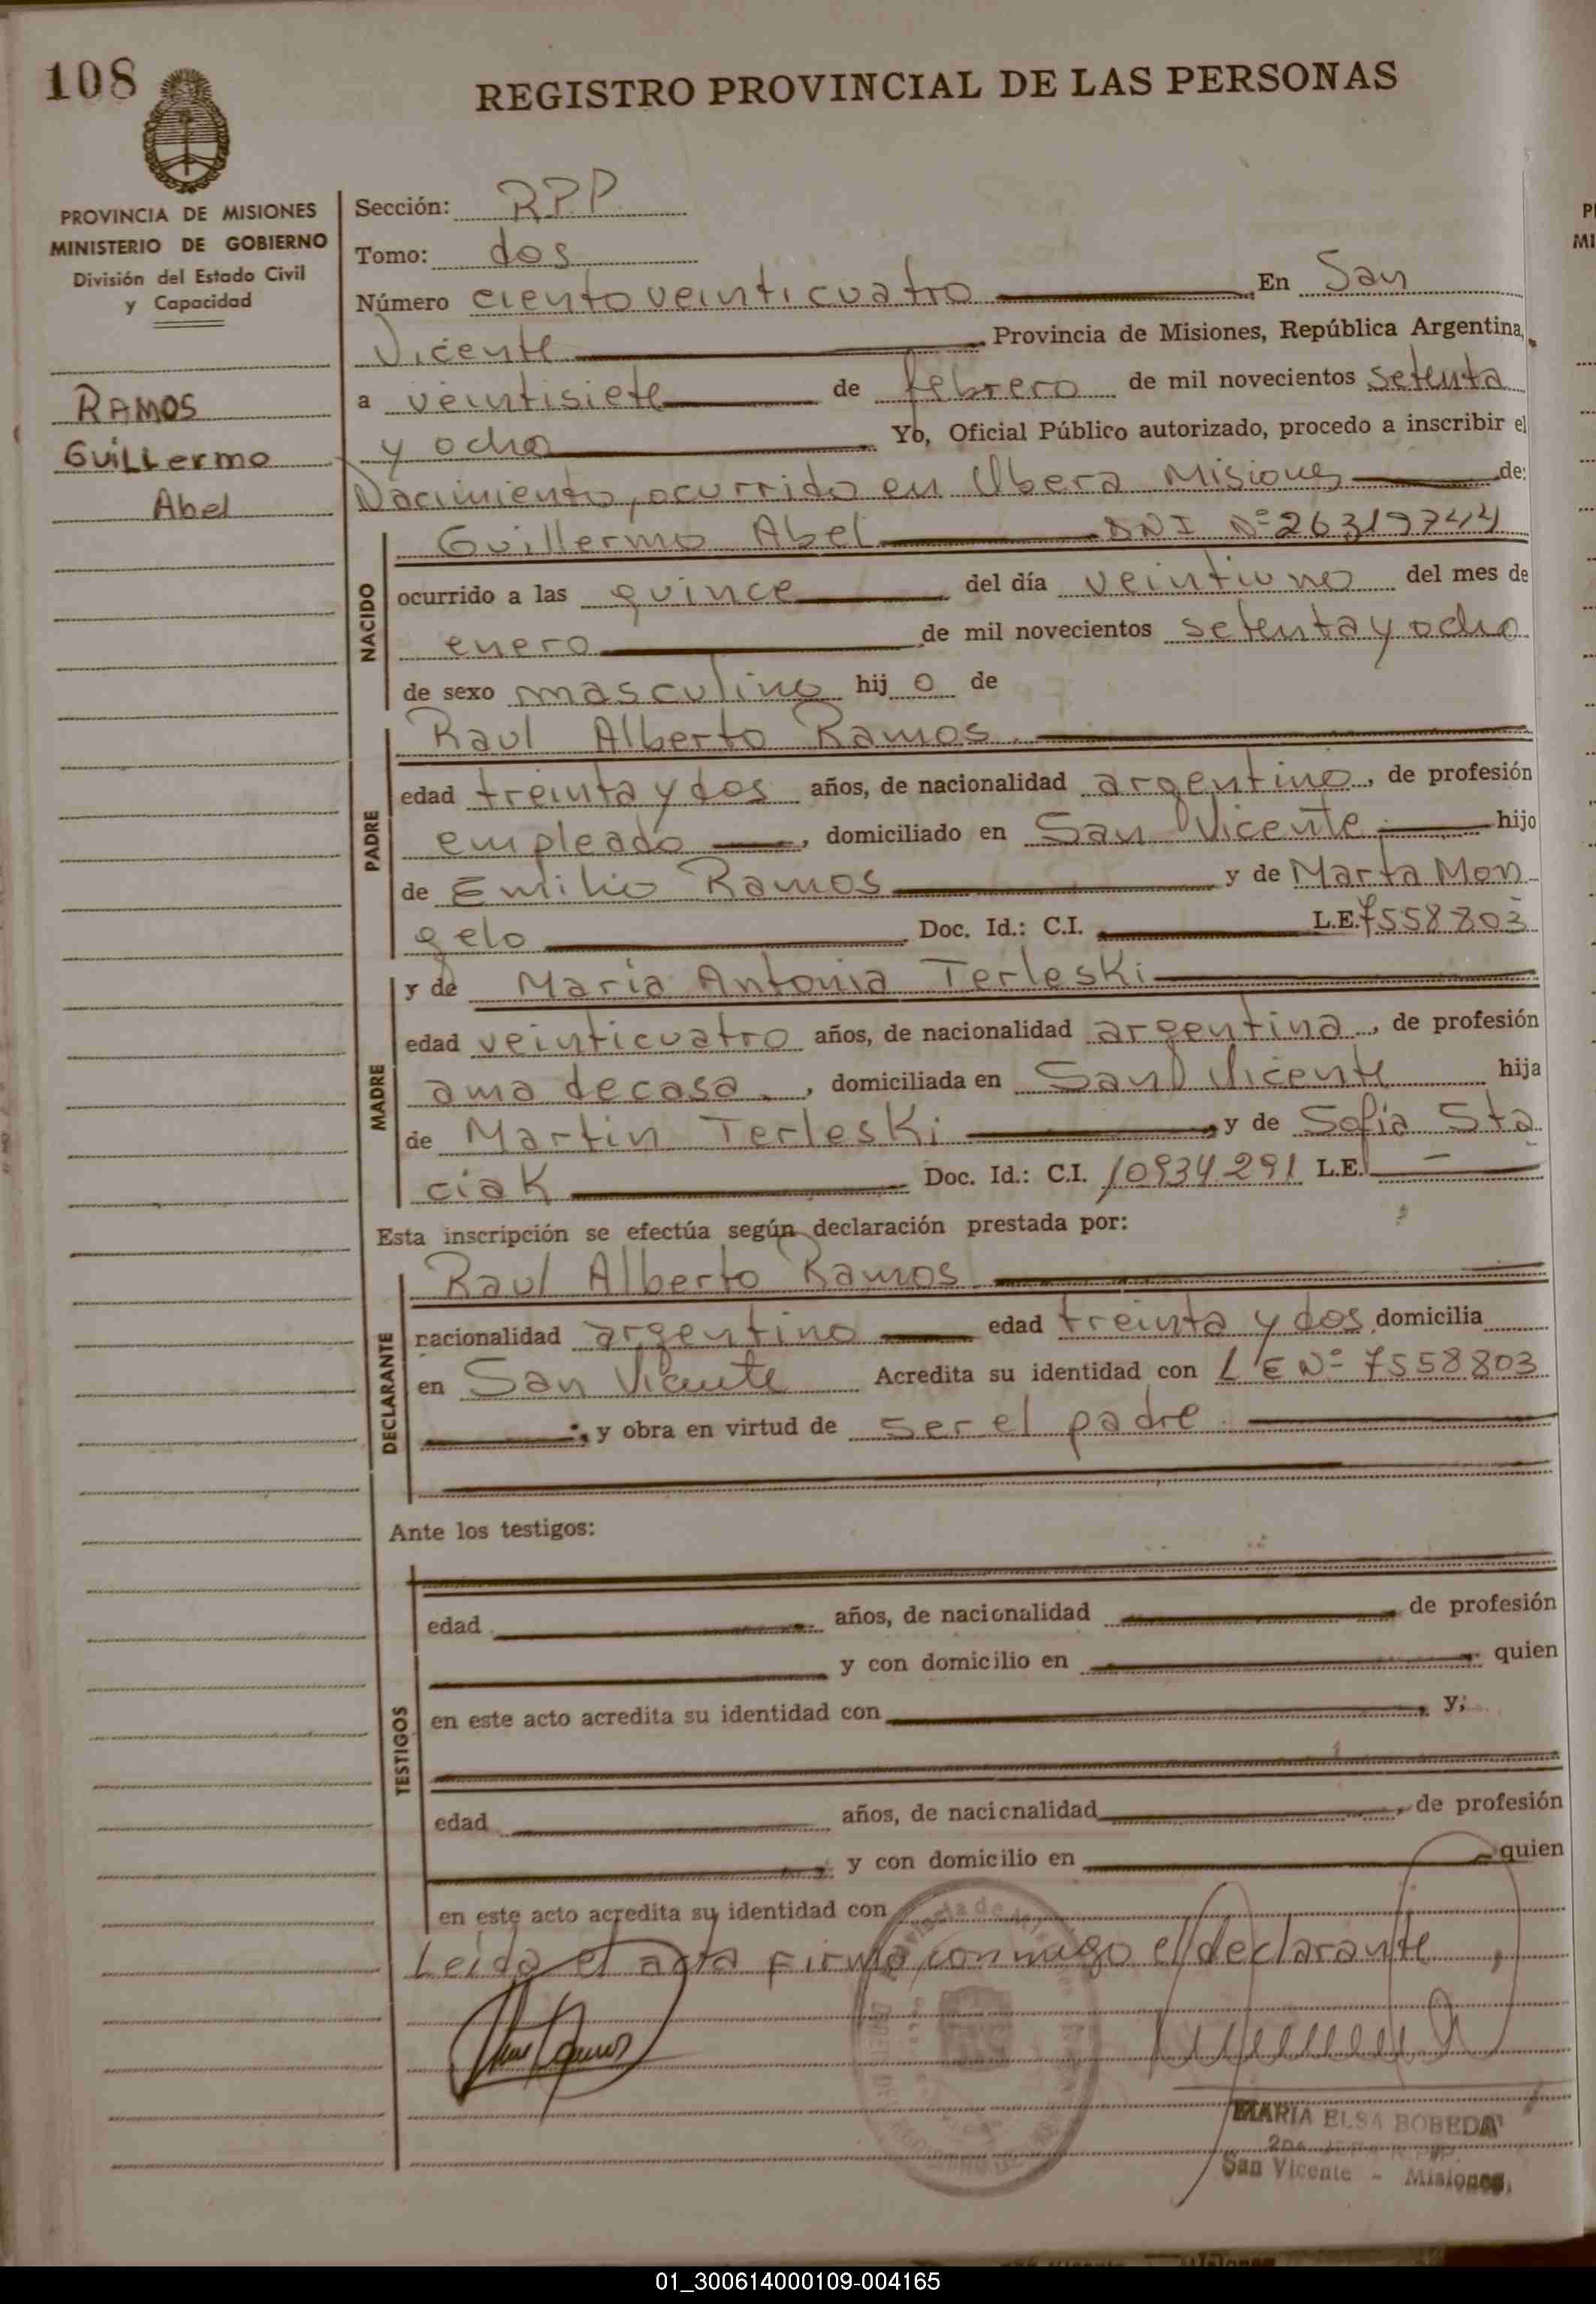 108
REGISTRO PROVINCIAL DE LAS PERSONAS
PROVINCIA DE MISIONES
MINISTERIO DE GOBIERNO
División del Estado Civil
y Capacidad
RAMOS
GuiLLermo
Abel
Sección: RPP
Tomo: dos
Número ciento veinticuatro En San
Vicente Provincia de Misiones, República Argentina,
a veintisiete de febrero de mil novecientos setenta
y ocho Yo, Oficial Público autorizado, procedo a inscribir el
Nacimiento, ocurrido en Obera Misiones de:
NACIDO
Guillermo Abel DNI Nº 26319744
ocurrido a las quince del día veintiuno del mes de
enero de mil novecientos setenta y ocho
de sexo masculino hij o de
PADRE
Raul Alberto Ramos
edad treinta y dos años, de nacionalidad argentino, de profesión
empleado, domiciliado en San Vicente hijo
de Emilio Ramos y de Marta Mon
gelo Doc. Id.: C.I. L.E. 7558803
MADRE
y de Maria Antonia Terleski
edad veinticuatro años, de nacionalidad argentina, de profesión
ama de casa, domiciliada en San Vicente hija
de Martin Terleski y de Sofia Sta
ciak Doc. Id.: C.I. 10934291 L.E. —
Esta inscripción se efectúa según declaración prestada por:
DECLARANTE
Raul Alberto Ramos
nacionalidad argentino edad treinta y dos domicilia
en San Vicente Acredita su identidad con L E Nº 7558803
; y obra en virtud de ser el padre
Ante los testigos:
TESTIGOS
edad años, de nacionalidad de profesión
y con domicilio en quien
en este acto acredita su identidad con, y;
edad años, de nacionalidad, de profesión
y con domicilio en quien
en este acto acredita su identidad con
Leida el acta firma conmigo el declarante
MARIA ELSA BOBEDA
San Vicente - Misiones
01_300614000109-004165